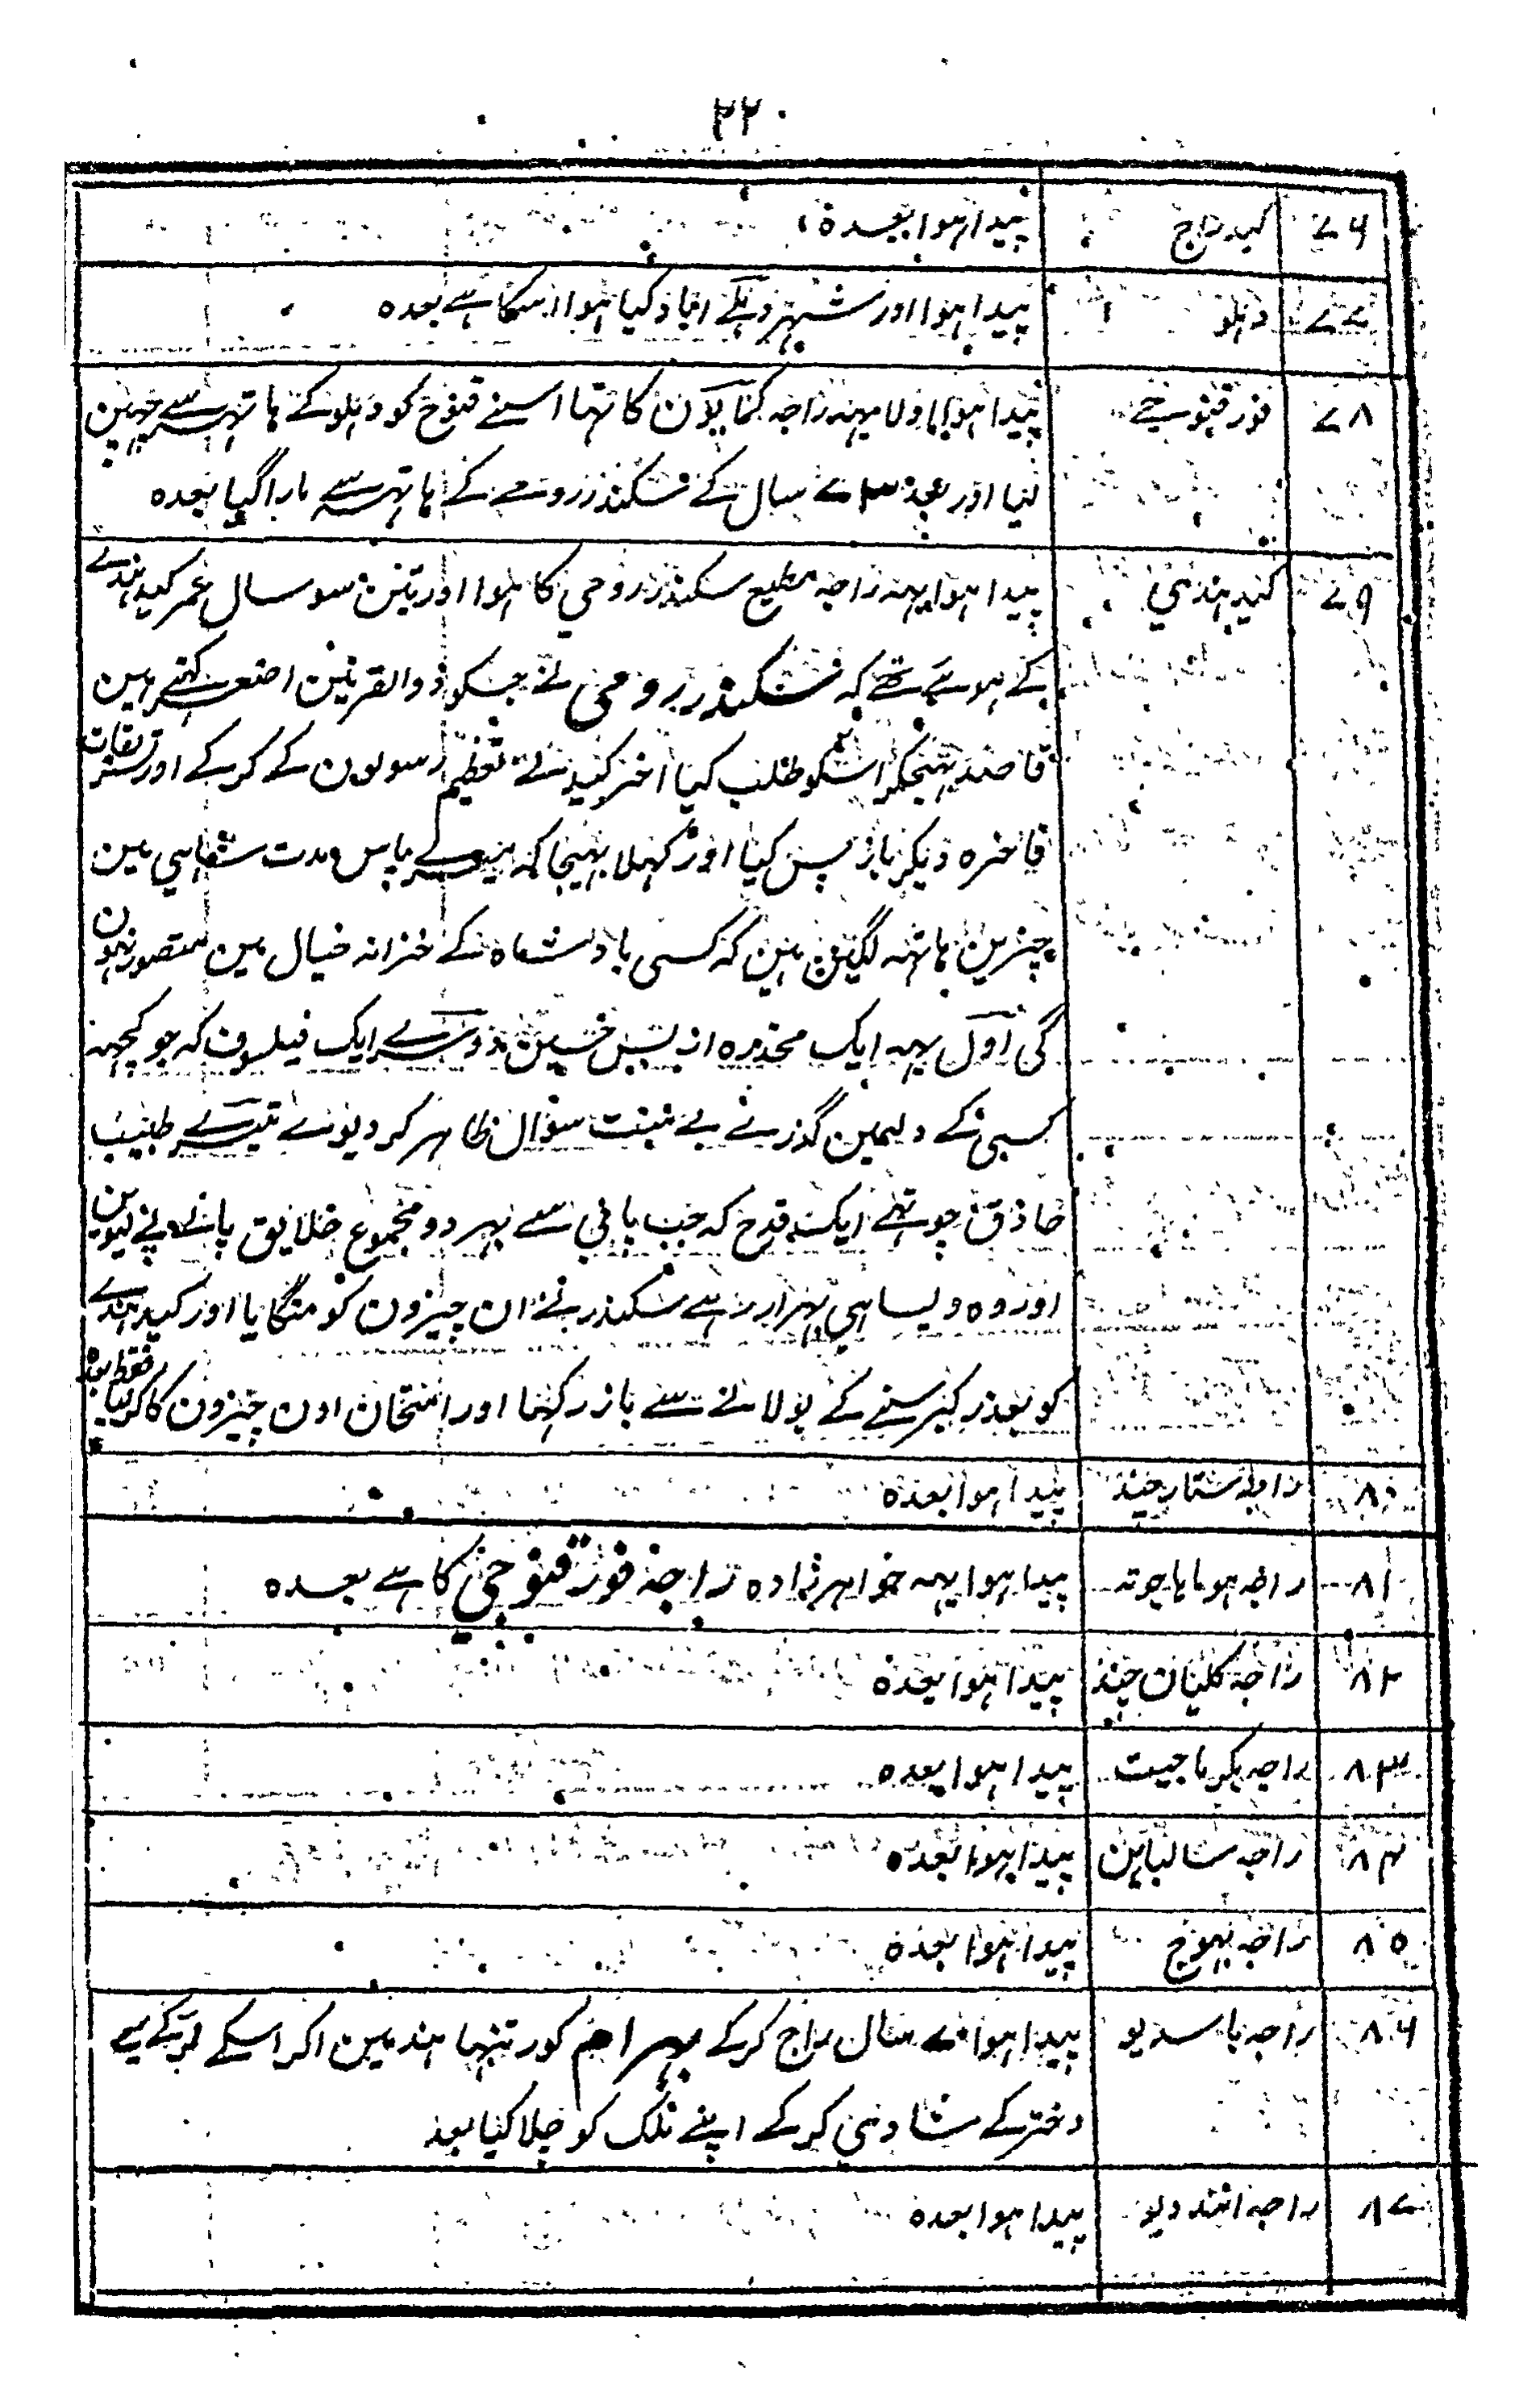 ۲۲۰
۷۶ کیدراج پیدا ہوا بعدہ
۷۷ دہلو پیدا ہوا اور شہر دہلے اباد کیا ہوا اسکا ہے بعدہ
۷۸ فور قنوجے پیدا ہوا اولا یہہ راجہ کمایون کا تہا اسنے قنوج کو دہلو کے ہاتہہ سے چہین
لیا اور بعد ۷۳ سال کے سکندر رومے کے ہاتہہ سے مارا گیا بعدہ
۷۹ کید ہندی پیدا ہوا یہہ راجہ مطیع سکندر رومی کا ہوا اور تین سو سال عمر کید ہندے
کے ہوئے تھے کہ سکندر رومی نے جسکو ذوالقرنین اصغر کہتے ہین
قاصد بہیجکر اسکو طلب کیا اخر کید نے تعظیم رسولون کے کر کے اور تشریفات
فاخرہ دیکر باز پس کیا اور کہلا بہیجا کہ میرے پاس مدت شاہی مین
چیزین ہاتہہ لگین ہین کہ کسی بادشاہ کے خزانہ خیال مین متصور نہون
گی اول یہہ ایک مخدرہ از بس حسین دوسرے ایک فیلسوف کہ جو کچہہ
کسی کے دلمین گذرے بے منت سؤال ظاہر کر دیوے تیسرے طبیب
حاذق چوتہے ایک قدح کہ جب پانی سے بہر دو مجموع خلایق پانی پے لیوین
اور وہ ویسا ہی بہرا رہے سکندر نے ان چیزون کو منگایا اور کید ہندے
کو بعذر کبر سنے کے بولانے سے باز رکہا اور امتحان اون چیزون کا کر لیا فقط بعدہ
۸۰ راجہ سنسار چند پیدا ہوا بعدہ
۸۱ راجہ ہوماہاجوتہ پیدا ہوا یہہ خواہرزادہ راجہ فور قنوجی کا ہے بعدہ
۸۲ راجہ کلیان چند پیدا ہوا بعدہ
۸۳ راجہ بکرماجیت پیدا ہوا بعدہ
۸۴ راجہ سالباہن پیدا ہوا بعدہ
۸۵ راجہ بہوج پیدا ہوا بعدہ
۸۶ راجہ باسدیو پیدا ہوا ۷۰ سال راج کر کے بہرام کور تنہا ہند مین اکر اسکے
دختر کے شادی کر کے اپنے ملک کو چلا گیا بعد
۸۷ راجہ انند دیو پیدا ہوا بعدہ